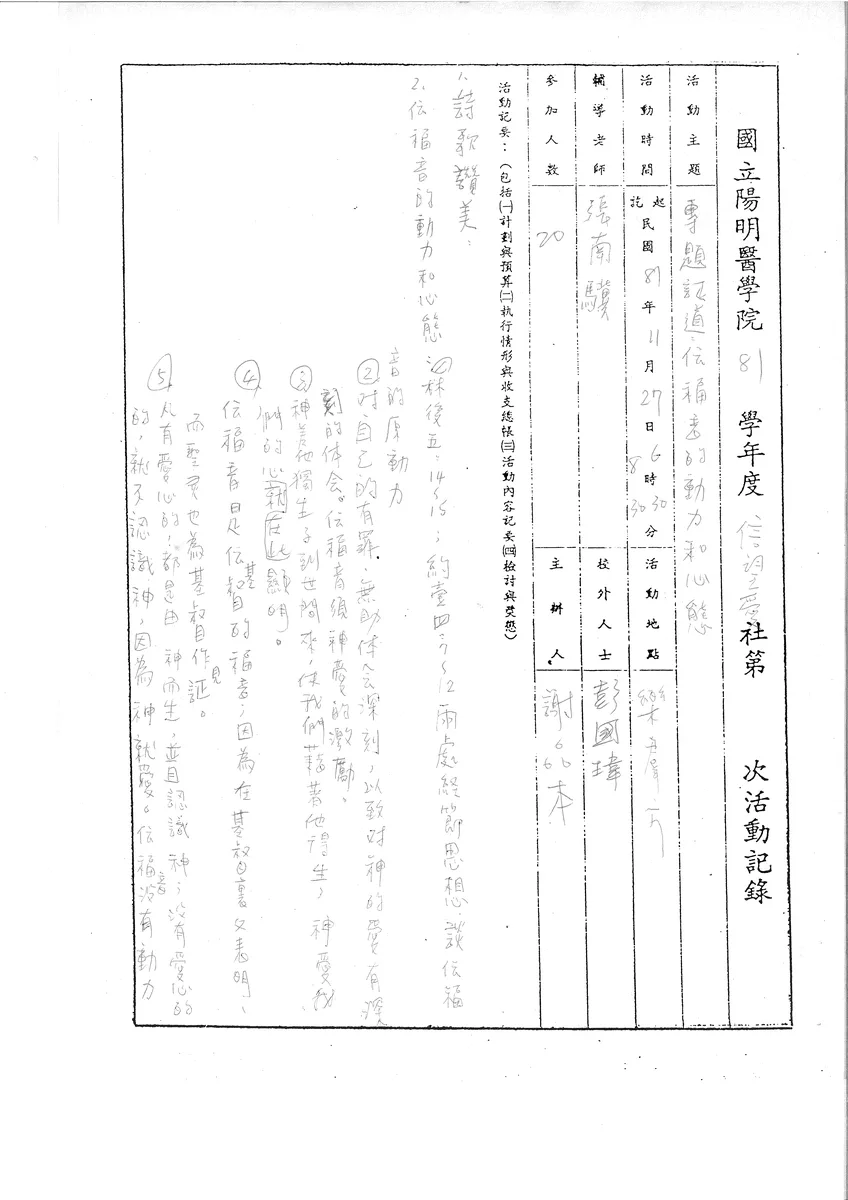 國立陽明醫學院 81 學年度 信望愛社第 次活動記錄
活動主題 專題証道：伝福音的動力和心態
活動時間 起訖 民國 81 年 11 月 27 日 6 時 30 分 8 30 活動地點
輔導老師 張南驥 校外人士 彭國瑋
參加人數 20 主辦人 謝
活動記要：（包括㈠計劃與預算㈡執行情形與收支總帳㈢活動內容記要㈣檢討與獎懲）
1. 詩歌讚美：
2. 伝福音的動力和心態：① 林後五：14～15；約壹四：7～12 兩處経節思想 談伝福
音的原動力
② 对自己的有罪，無助体会深刻，以致对神的愛有深
刻的体会。伝福音須神愛的激勵。
③ 神差他獨生子到世間來，使我們藉著他得生，神愛我
們的心就在此顯明。
④ 伝福音是伝基督的福音，因為在基督裏父表明、
而聖灵也為基督作見証。
⑤ 凡有愛心的，都是由神而生，並且認識神；没有愛心的
的，就不認識神，因為神就愛。伝福音没有動力